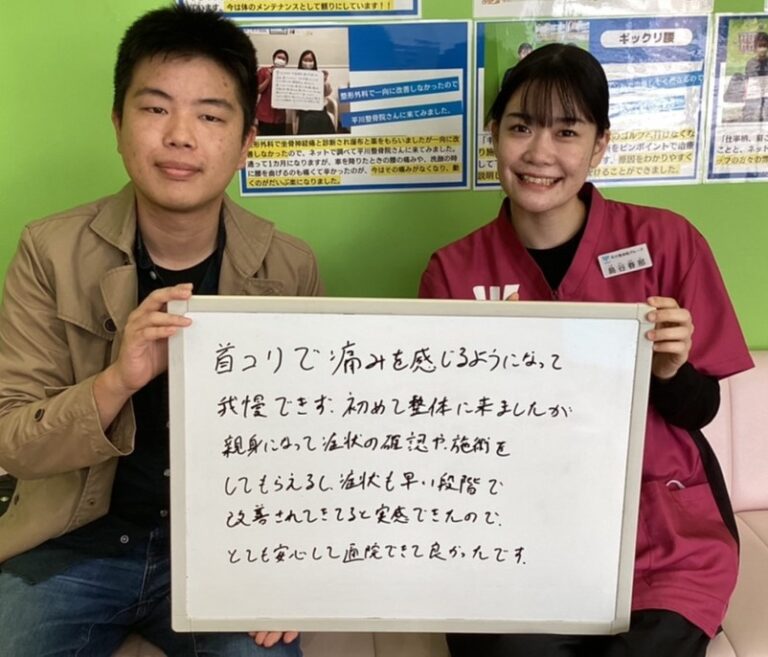 今は体のメンテナンスとして頼りにしています！！
整形外科で一向に改善しなかったので
平川整骨院さんに来てみました。
整形外科で坐骨神経痛と診断され湿布と薬をもらいましたが一向に改
善しなかったので、ネットで調べて平川整骨院さんに来てみました。
通って1カ月になりますが、車を降りたときの腰の痛みや、洗顔の時
に腰を曲げるのも痛くて辛かったのが、今はその痛みがなくなり、動
くのがだいぶ楽になりました。
ギックリ腰
をピンポイントで治療
原因をわかりやすく
けることができました。
首コリで痛みを感じるようになって
我慢できず、初めて整体に来ましたが
親身になって症状の確認や、施術を
してもらえるし、症状も早い段階で
改善されてきてると実感できたので、
とても安心して通院できて良かったです。